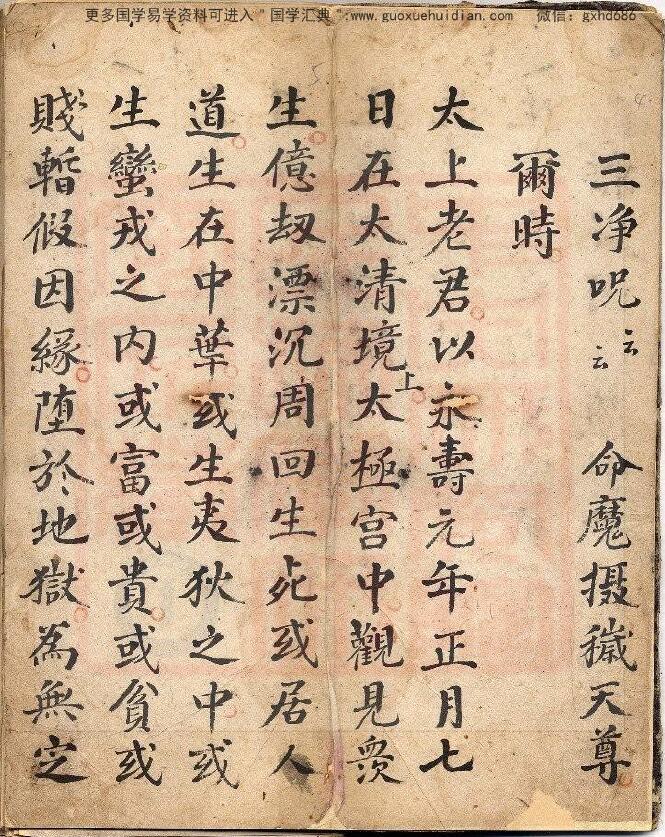 更多国学易学资料可进入＂国学汇典＂:www.guoxuehuidian.com 微信：gxhd686
三净呪云云 命魔摄穢天尊
爾時
太上老君以永壽元年正月七
日在太清境上太極宫中觀見衆
生億劫漂沉周回生死或居人
道生在中華或生夷狄之中或
生蠻戎之内或富或貴或貧或
賤暫假因緣墮於地獄為無定